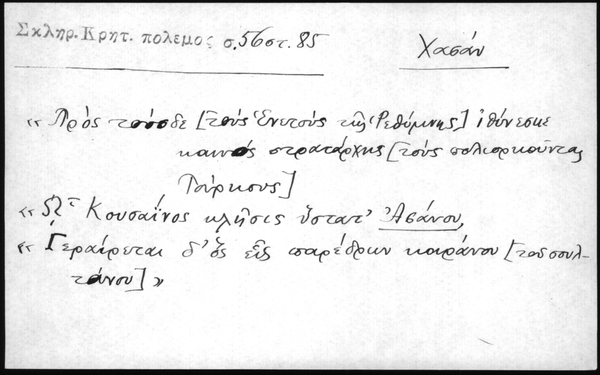 Σκληρ. Κρητ. πολεμος σ. 56 στ. 85
Χασάν
« Πρός τούσδε [τούς Ενετούς τῆς Ρεθύμνης] ἰθύνεσκε
καινός στρατάρχης [τούς πολιορκοῦντας
Τούρκους]
« Ὧι Κουσαΐνος κλῆσις ὕστατ' Ἀσάνου,
« Γεραίρεται δ' ὅς εἷς παρέδρων κοιράνου [τοῦ σουλ-
τάνου] »